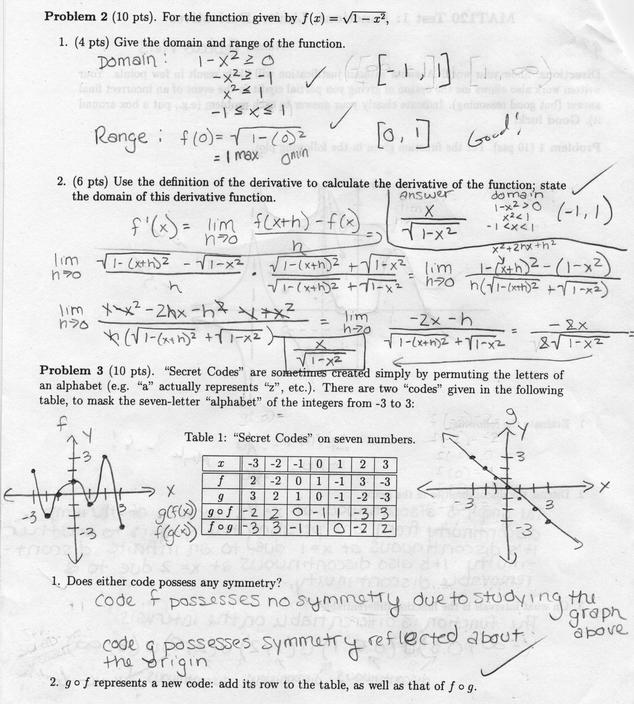 Problem 2 (10 pts). For the function given by f(x) = √1 − x²,
1. (4 pts) Give the domain and range of the function.
Domain : 1-x² ≥ 0
-x² ≥ -1
x² ≤ 1
-1 ≤ x ≤ 1
[-1, 1]
Range : f(0) = √1-(0)²
= 1 max 0 min
[0, 1]
Good!
2. (6 pts) Use the definition of the derivative to calculate the derivative of the function; state
the domain of this derivative function.
Answer
x / √1-x²
domain
1-x² > 0
x² < 1
-1 < x < 1
(-1, 1)
f'(x) = lim h→0 f(x+h) - f(x) / h =
x²+2hx+h²
lim h→0 √1-(x+h)² - √1-x² / h · √1-(x+h)² + √1-x² / √1-(x+h)² + √1-x² = lim h→0 1-(x+h)² - (1-x²) / h(√1-(x+h)² + √1-x²)
lim h→0 1-x² - 2hx - h² - 1 + x² / h(√1-(x+h)² + √1-x²) = lim h→0 -2x - h / √1-(x+h)² + √1-x² = -2x / 2√1-x² =
x / √1-x²
Problem 3 (10 pts). "Secret Codes" are sometimes created simply by permuting the letters of
an alphabet (e.g. "a" actually represents "z", etc.). There are two "codes" given in the following
table, to mask the seven-letter "alphabet" of the integers from -3 to 3:
f
y
3
x
-3
3
-3
Table 1: "Secret Codes" on seven numbers.
x -3 -2 -1 0 1 2 3
f 2 -2 0 1 -1 3 -3
g 3 2 1 0 -1 -2 -3
g(f(x)) g∘f -2 2 0 -1 1 -3 3
f(g(x)) f∘g -3 3 -1 1 0 -2 2
g
y
3
x
-3
3
-3
1. Does either code possess any symmetry?
code f possesses no symmetry due to studying the
graph
above
code g possesses symmetry reflected about
the origin
2. g ∘ f represents a new code: add its row to the table, as well as that of f ∘ g.